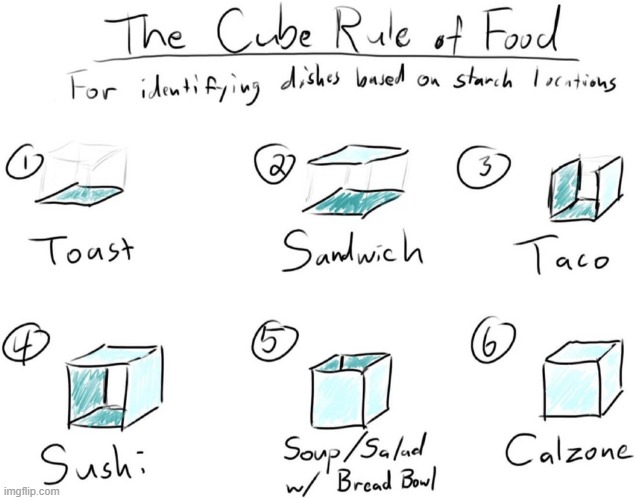 The Cube Rule of Food
For identifying dishes based on starch locations
① ② ③
Toast Sandwich Taco
④ ⑤ ⑥
Sushi Soup/Salad w/ Bread Bowl Calzone
imgflip.com